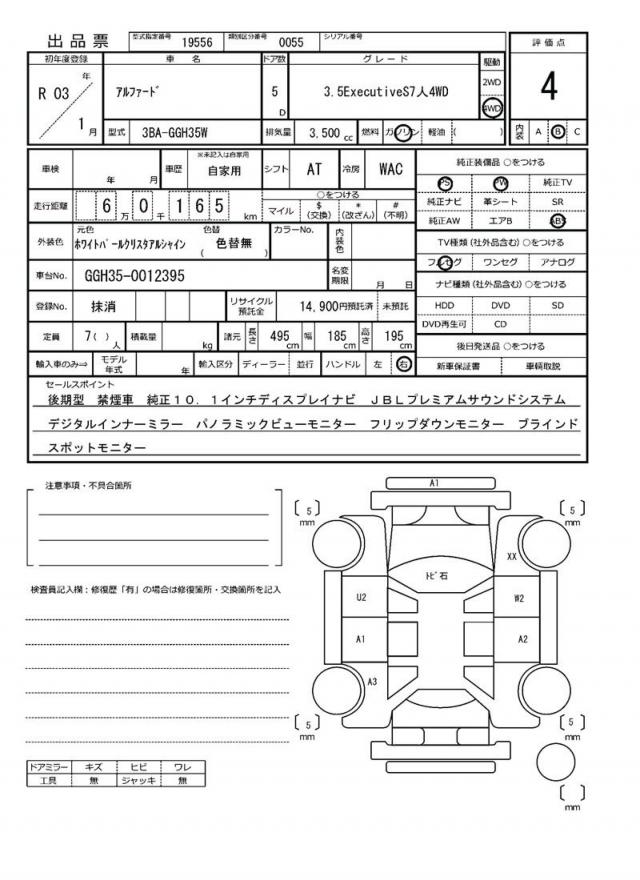 出品票 型式指定番号 19556 類別区分番号 0055 シリアル番号
初年度登録 車名 ドア数 グレード 駆動 評価点
R 03 年 1 月 アルファード 5 D 3.5ExecutiveS7人4WD 2WD 4WD 4
型式 3BA-GGH35W 排気量 3,500 cc 燃料 ガソリン 軽油 ( ) 内装 A B C
車検 年 月 車歴 ※未記入は自家用 自家用 シフト AT 冷房 WAC
走行距離 6 万 0 千 1 6 5 km ○をつける マイル $ (交換) * (改ざん) # (不明)
外装色 元色 ホワイトパールクリスタルシャイン 色替 ( 色替無 ) カラーNo. 内装色
車台No. GGH35-0012395 名変期限 月 日
登録No. 抹消 リサイクル預託金 14,900円預託済 未預託
定員 7( ) 人 積載量 kg 諸元 長さ 495 cm 幅 185 cm 高さ 195 cm
輸入車のみ⇒ モデル年式 年 輸入区分 ディーラー 並行 ハンドル 左 右
純正装備品 ○をつける
PS PW 純正TV
純正ナビ 革シート SR
純正AW エアB ABS
TV種類(社外品含む) ○をつける
フルセグ ワンセグ アナログ
ナビ種類(社外品含む) ○をつける
HDD DVD SD
DVD再生可 CD
後日発送品 ○をつける
新車保証書 車輌取説
セールスポイント
後期型 禁煙車 純正10.1インチディスプレイナビ JBLプレミアムサウンドシステム
デジタルインナーミラー パノラミックビューモニター フリップダウンモニター ブラインド
スポットモニター
注意事項・不具合箇所
検査員記入欄：修復歴「有」の場合は修復箇所・交換箇所を記入
ドアミラー キズ ヒビ ワレ
工具 無 ジャッキ 無
A1
[ 5 ] mm
[ 5 ] mm
XX
トビ石
U2
W2
A1
A2
A3
[ 5 ] mm
[ 5 ] mm
[ ] mm